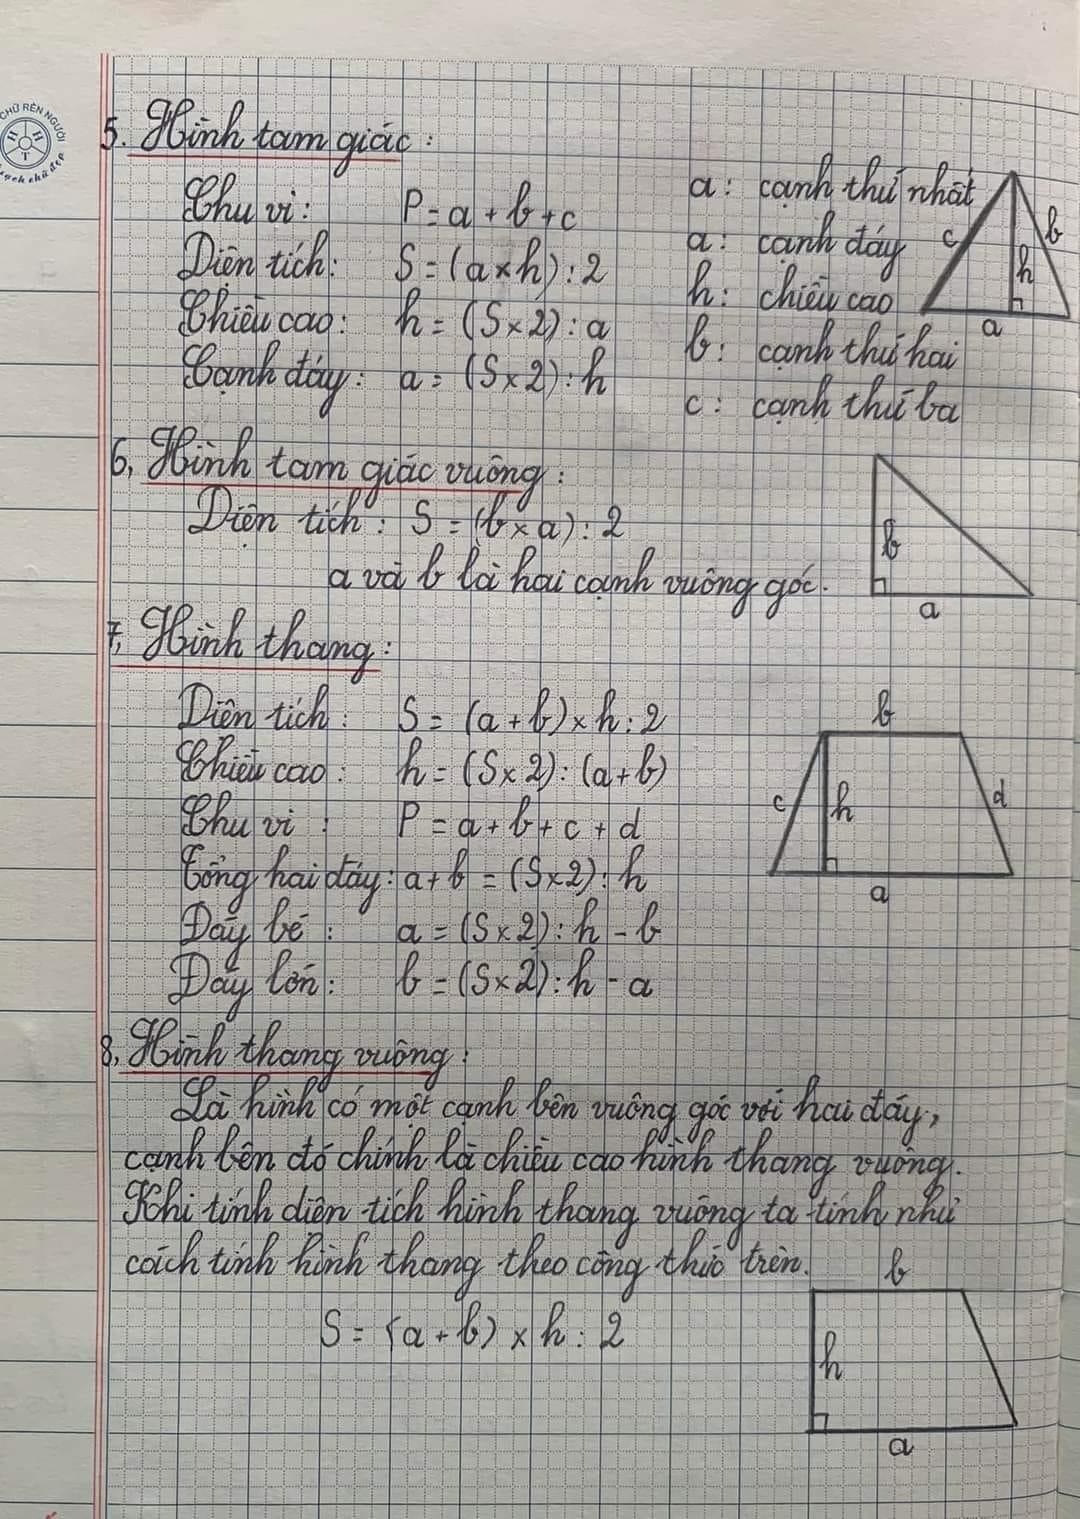 CHỮ RÈN NGƯỜI
H H
T
5. Hình tam giác:
Chu vi: P = a + b + c
Diện tích: S = (a x h) : 2
Chiều cao: h = (S x 2) : a
Cạnh đáy: a = (S x 2) : h
a: cạnh thứ nhất
a: cạnh đáy
h: chiều cao
b: cạnh thứ hai
c: cạnh thứ ba
c b
h
a
6, Hình tam giác vuông:
Diện tích: S = (b x a) : 2
a và b là hai cạnh vuông góc.
b
a
7, Hình thang:
Diện tích: S = (a + b) x h : 2
Chiều cao: h = (S x 2) : (a + b)
Chu vi: P = a + b + c + d
Tổng hai đáy: a + b = (S x 2) : h
Đáy bé: a = (S x 2) : h - b
Đáy lớn: b = (S x 2) : h - a
b
c h d
a
8, Hình thang vuông:
Là hình có một cạnh bên vuông góc với hai đáy,
cạnh bên đó chính là chiều cao hình thang vuông.
Khi tính diện tích hình thang vuông ta tính như
cách tính hình thang theo công thức trên.
S = (a + b) x h : 2
b
h
a